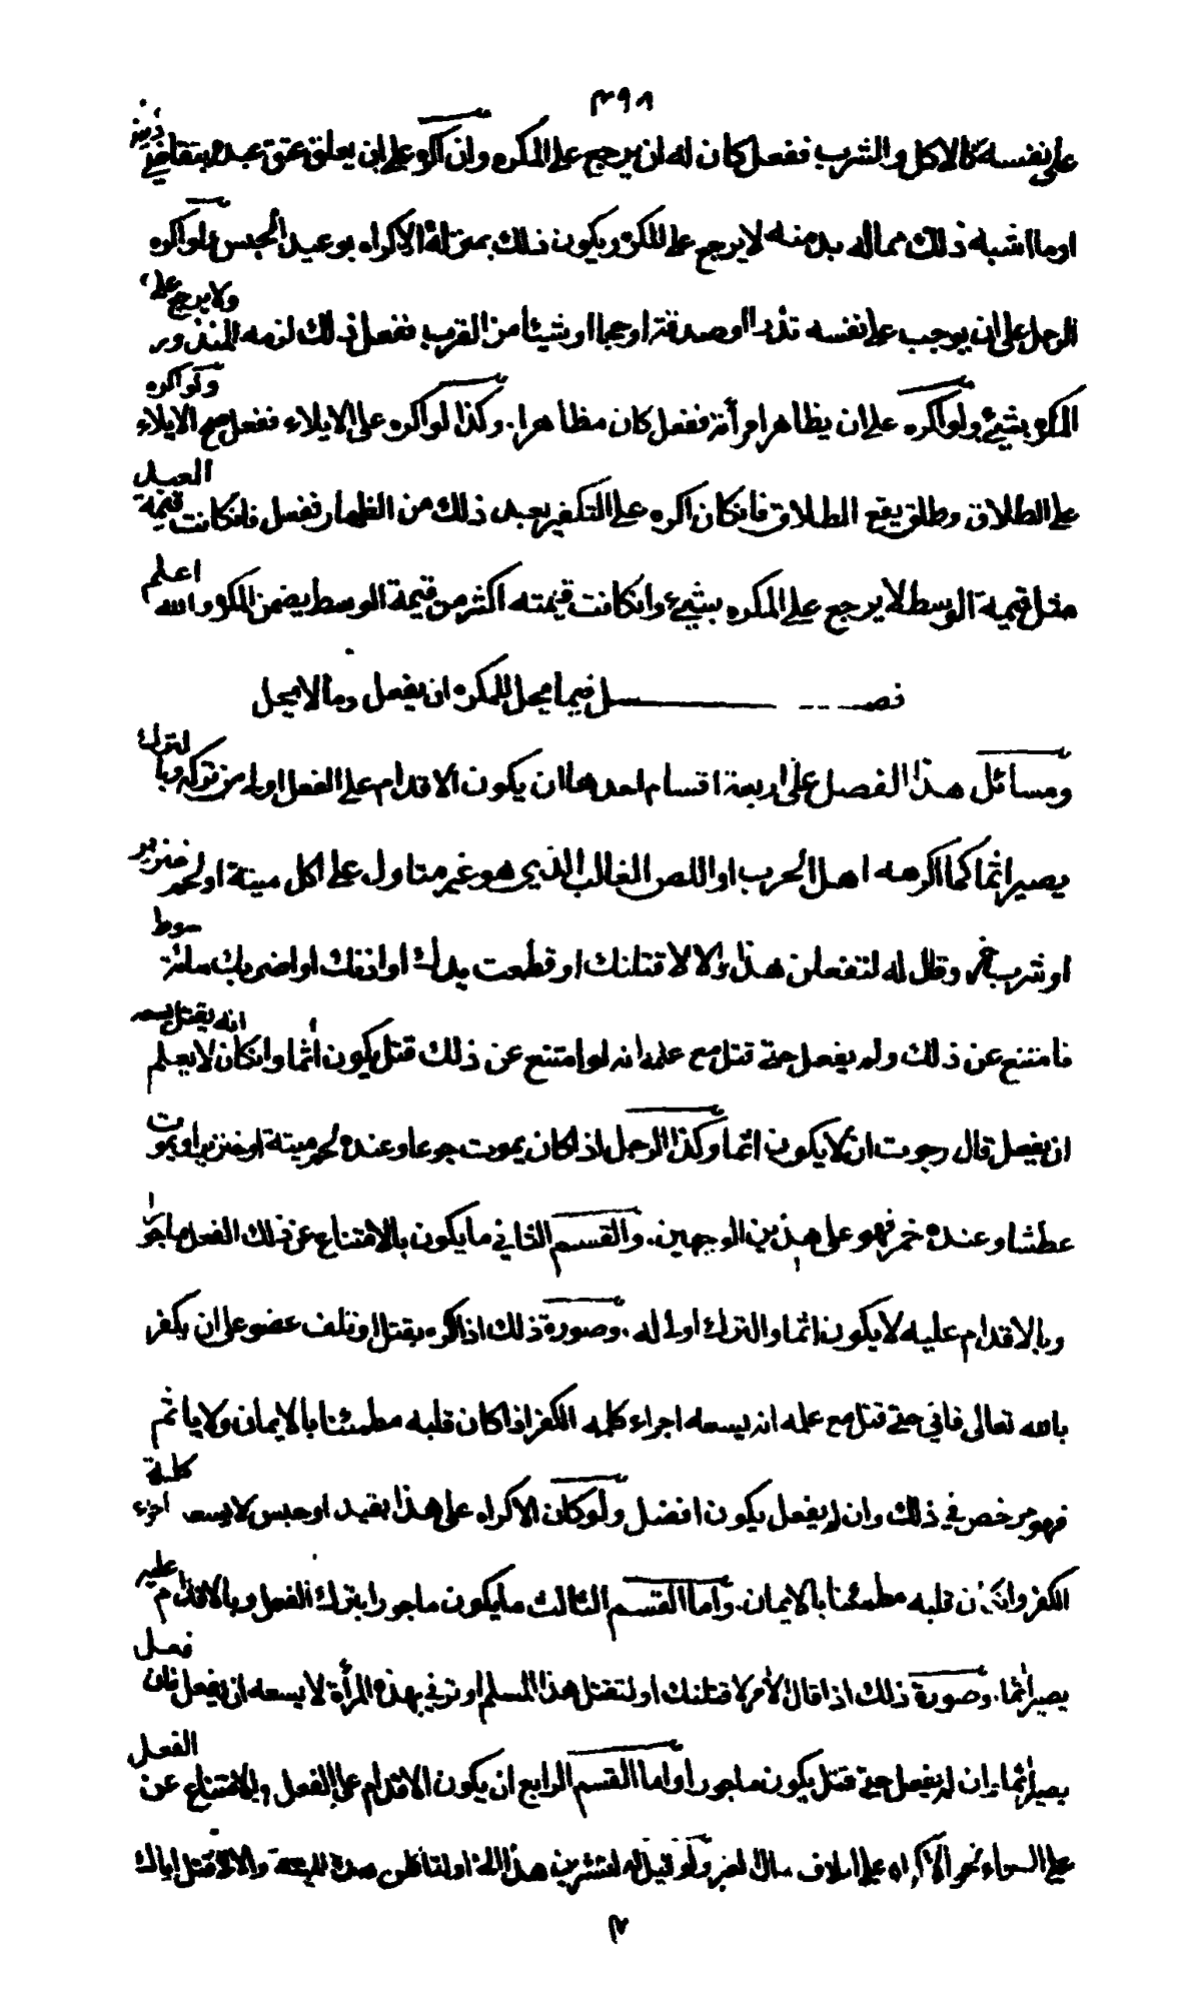 ٤٩٨
على نفسه كالاكل والشرب ففعل كان له ان يرجع على المكره وان اكره على ان يعلق عتق عبده بتقاضي دين
اوما اشبه ذلك مماله بد منه لا يرجع على المكره ويكون ذلك بمنزلة الاكراه بوعيد الحبس ولو اكره
الرجل على ان يوجب على نفسه نذرا اوصدقة اوحجا اوشيئا من القرب ففعل ذلك لزمه المنذور ولا يرجع على
المكره بشئ ولو اكره على ان يظاهر امرأته ففعل كان مظاهرا. وكذا لو اكره على الايلاء ففعل صح الايلاء ولو اكره
على الطلاق وطلق يقع الطلاق فانكان اكره على التكفير بعبد ذلك من الظهار ففعل فانكانت قيمة العبد
مثل قيمة الوسط لا يرجع على المكره بشيء وانكانت قيمته اكثر من قيمة الوسط يضمن المكره والله اعلم
فصـــــــل فيما يحل للمكره ان يفعل وما لا يحل
ومسائل هذا الفصل على اربعة اقسام احدها ان يكون الاقدام على الفعل اولى من تركه وبالترك
يصير اثما كما اكرهه اهل الحرب او اللص الغالب الذي هو غير متاول على اكل ميتة اولحم خنزير
اوشرب خمر وقال له لتفعلن هذا والا لاقتلنك او قطعت يدك او اذنك او اضربك مائة سوط
فامتنع عن ذلك ولم يفعل حتى قتل مع علمه انه لو امتنع عن ذلك قتل يكون أثما وانكان لا يعلم انه يقتل يسعه
ان يفعل قال رجوت ان لا يكون اثما وكذا الرجل اذا كان يموت جوعا وعنده لحم ميتة اوخنزير اويموت
عطشا وعنده خمر فهو على هذين الوجهين. والقسم الثاني ما يكون بالامتناع عن ذلك الفعل ماجورا
وبالاقدام عليه لا يكون اثما والترك اولى له. وصورة ذلك اذا اكره بقتل او تلف عضو على ان يكفر
بالله تعالى فابى حتى قتل مع علمه انه يسعه اجراء كلمه الكفر اذا كان قلبه مطمئنا بالايمان ولا ياثم
فهو مرخص في ذلك وان لم يفعل يكون افضل ولو كان الاكراه على هذا بقيد او حبس لا يسعه اجراء كلمة
الكفر وانكان قلبه مطمئنا بالايمان. واما القسم الثالث ما يكون ماجورا بترك الفعل وبالاقدام عليه
يصير اثما. وصورة ذلك اذا قال الآمر لاقتلنك او لتقتل هذا المسلم او تزني بهذه المرأة لا يسعه ان يفعل فان فعل
يصير اثما وان لم يفعل حتى قتل يكون ماجورا واما القسم الرابع ان يكون الاقدام على الفعل والامتناع عن الفعل
على السواء نحو الاكراه على اتلاف مال الغير ولو قيل له لتشربن هذا اولتاكلن هذه الميتة والا لاقتلن اباك